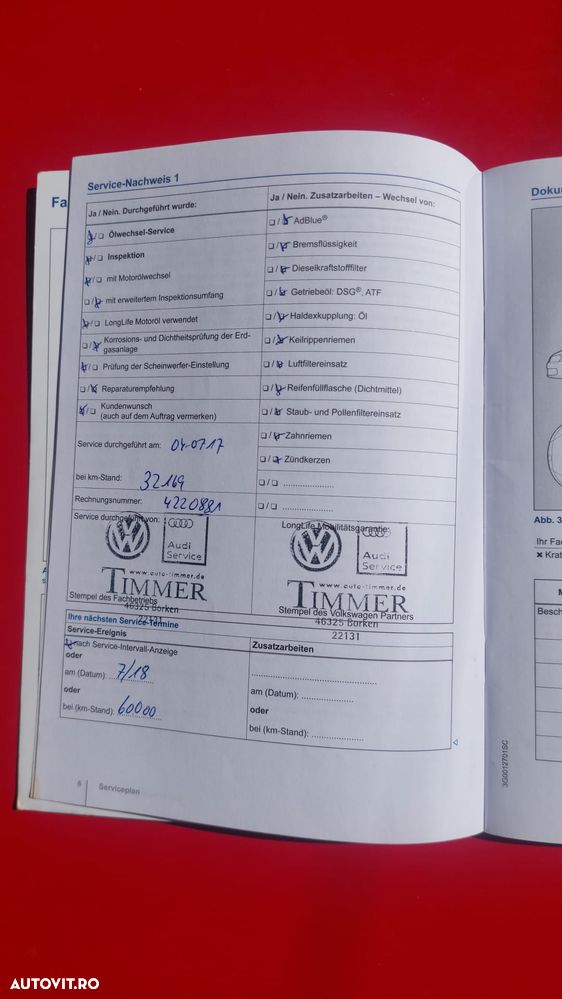 Service-Nachweis 1
Fa
Ja / Nein. Durchgeführt wurde:
/❑ Ölwechsel-Service
/❑ Inspektion
/❑ mit Motorölwechsel
❑/ mit erweitertem Inspektionsumfang
/❑ LongLife Motoröl verwendet
❑/ Korrosions- und Dichtheitsprüfung der Erd-
gasanlage
/❑ Prüfung der Scheinwerfer-Einstellung
❑/ Reparaturempfehlung
/❑ Kundenwunsch
(auch auf dem Auftrag vermerken)
Service durchgeführt am: 04.07.17
bei km-Stand: 32169
Rechnungsnummer: 4220881
Service durchgeführt von:
Audi
Service
www.auto-timmer.de
TIMMER
Stempel des Fachbetriebs
46325 Borken
22131
Ja / Nein. Zusatzarbeiten – Wechsel von:
❑/ AdBlue®
❑/ Bremsflüssigkeit
❑/ Dieselkraftstofffilter
❑/ Getriebeöl: DSG®, ATF
❑/ Haldexkupplung: Öl
❑/ Keilrippenriemen
❑/ Luftfiltereinsatz
❑/ Reifenfüllflasche (Dichtmittel)
❑/ Staub- und Pollenfiltereinsatz
❑/ Zahnriemen
❑/ Zündkerzen
❑/❑ .....................
❑/❑ .....................
LongLife Mobilitätsgarantie:
Audi
Service
www.auto-timmer.de
TIMMER
Stempel des Volkswagen Partners
46325 Borken
22131
Ihre nächsten Service-Termine
Service-Ereignis
nach Service-Intervall-Anzeige
oder
am (Datum): 7/18
oder
bei (km-Stand): 60000
Zusatzarbeiten
.....................
am (Datum): .....................
oder
bei (km-Stand): .....................
6 Serviceplan
Doku
Abb. 3
Ihr Fa
× Krat
M
Besch
3G0012701SC
AUTOVIT.RO